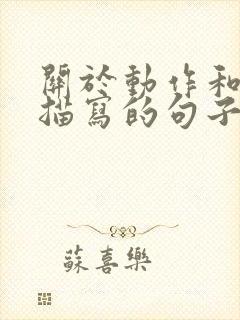 關於動作和
描寫的句子
蘇喜樂